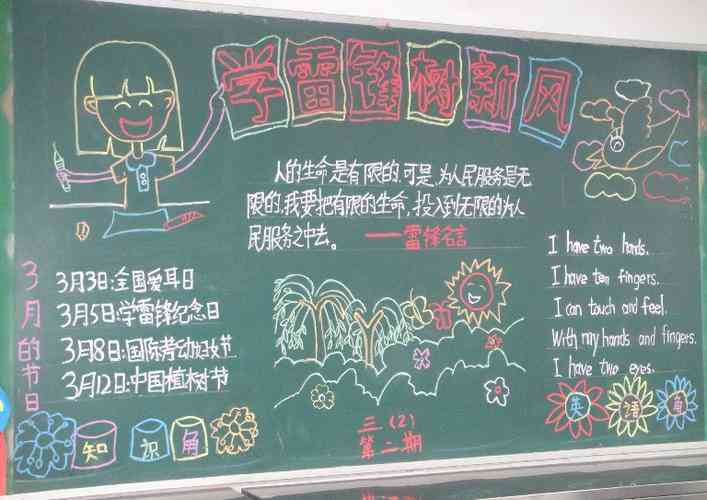 学雷锋树新风
人的生命是有限的,可是,为人民服务是无
限的,我要把有限的生命,投入到无限的为人
民服务之中去。
——雷锋名言
3月的节日
3月3日:全国爱耳日
3月5日:学雷锋纪念日
3月8日:国际劳动妇女节
3月12日:中国植树节
知识角
I have two hands.
I have ten fingers.
I can touch and feel.
With my hands and fingers.
I have two eyes.
英语角
三(2)
第二期